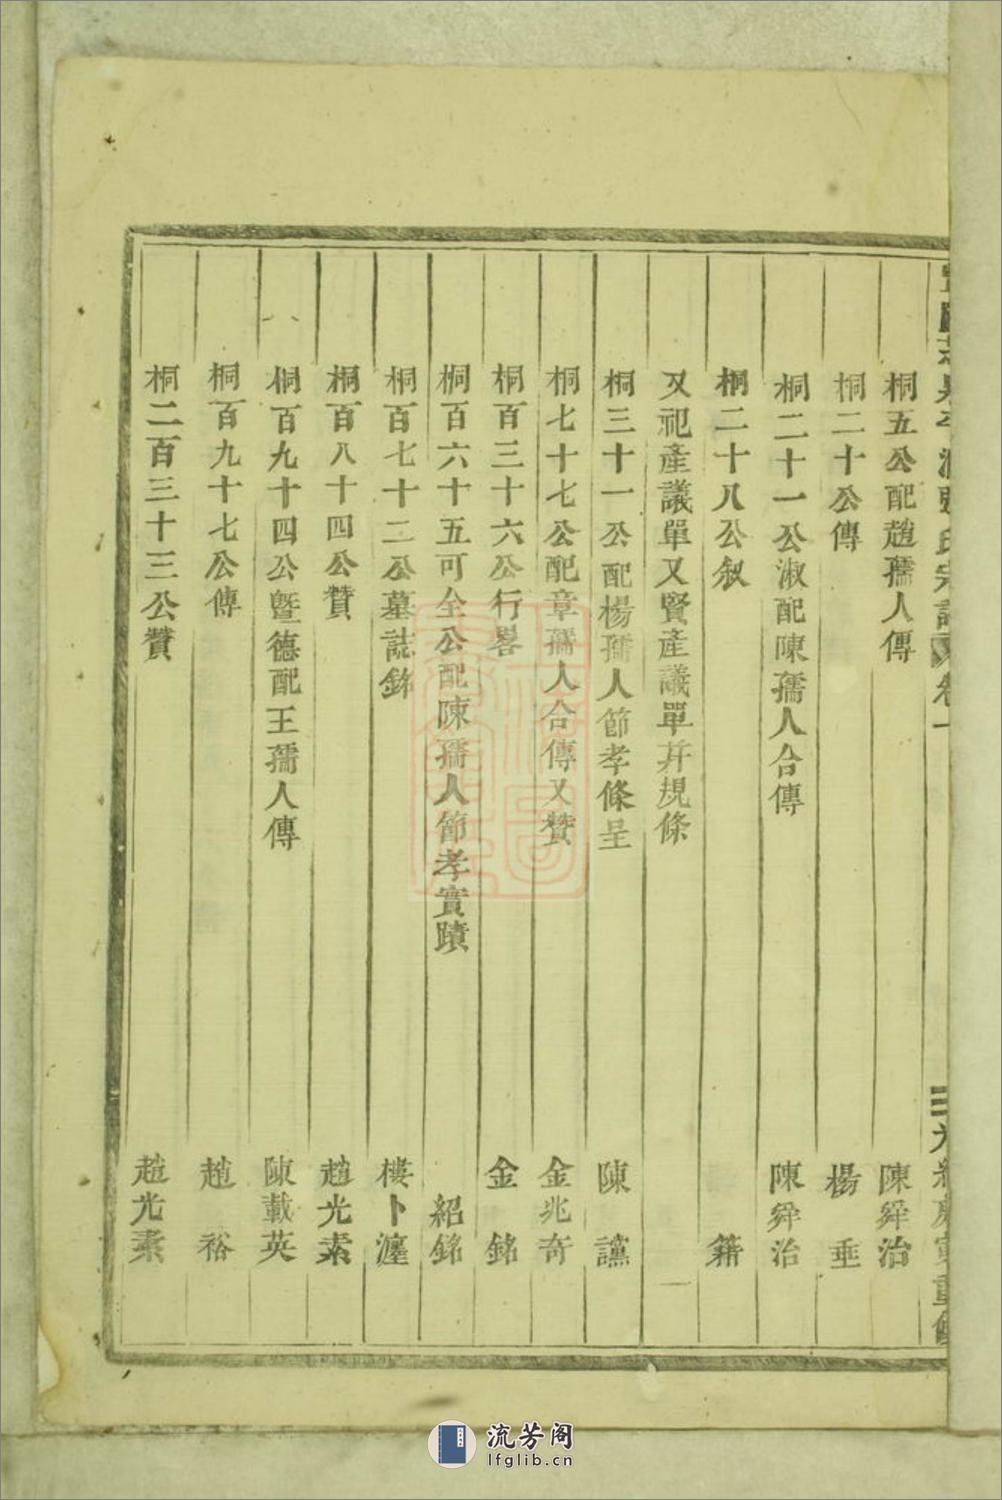 氏宗譜 卷一
桐五公配趙孺人傳 陳舜治
桐二十公傳 楊垂
桐二十一公淑配陳孺人合傳 陳舜治
桐二十八公叙 籍
又祀產議單又賢產議單并規條
桐三十一公配楊孺人節孝條呈 陳讜
桐七十七公配章孺人合傳又贊 金兆奇
桐百三十六公行畧 金銘
桐百六十五可全公配陳孺人節孝實蹟 紹銘
桐百七十二公墓誌銘 樓卜瀍
桐百八十四公贊 趙光素
桐百九十四公暨德配王孺人傳 陳載英
桐百九十七公傳 趙裕
桐二百三十三公贊 趙光素
流芳阁
lfglib.cn